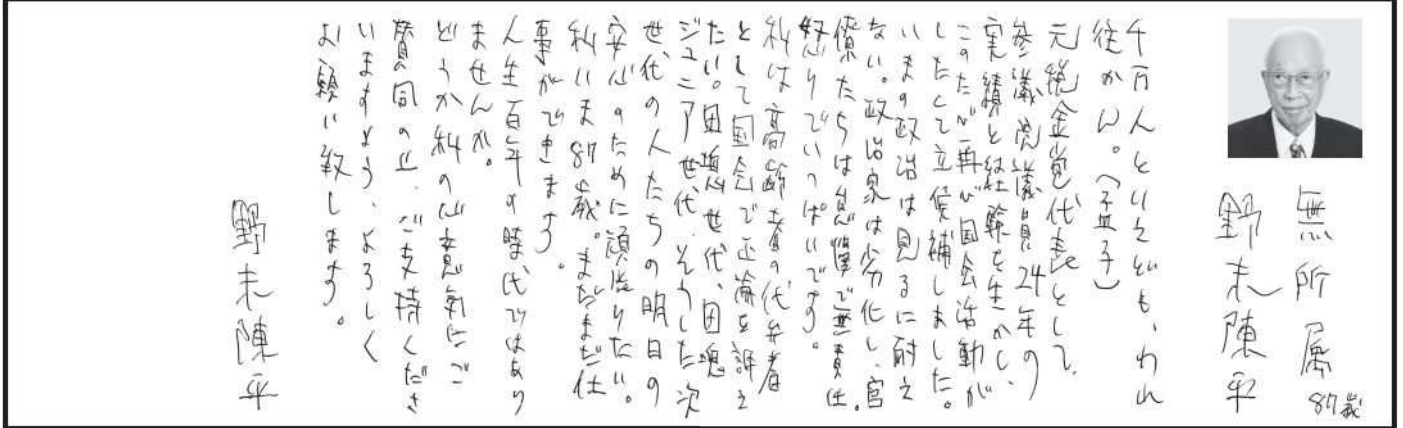 無所属 87歳
野末陳平
千万人といえども、われ
往かん。(孟子)
元税金党代表として、
参議院議員24年の
実績と経験を生かし、
このたび再び国会活動が
したくて立候補しました。
いまの政治は見るに耐え
ない。政治家は劣化し、官
僚たちは怠慢で無責任。
怒りでいっぱいです。
私は高齢者の代弁者
として国会で正論を訴え
たい。団塊世代、団塊
ジュニア世代、そうした次
世代の人たちの明日の
安心のために頑張りたい。
私いま87歳。まだまだ仕
事ができます。
人生百年の時代ではあり
ませんか。
どうか私の心意気にご
賛同の上、ご支持くださ
いますよう、よろしく
お願い致します。
野末陳平